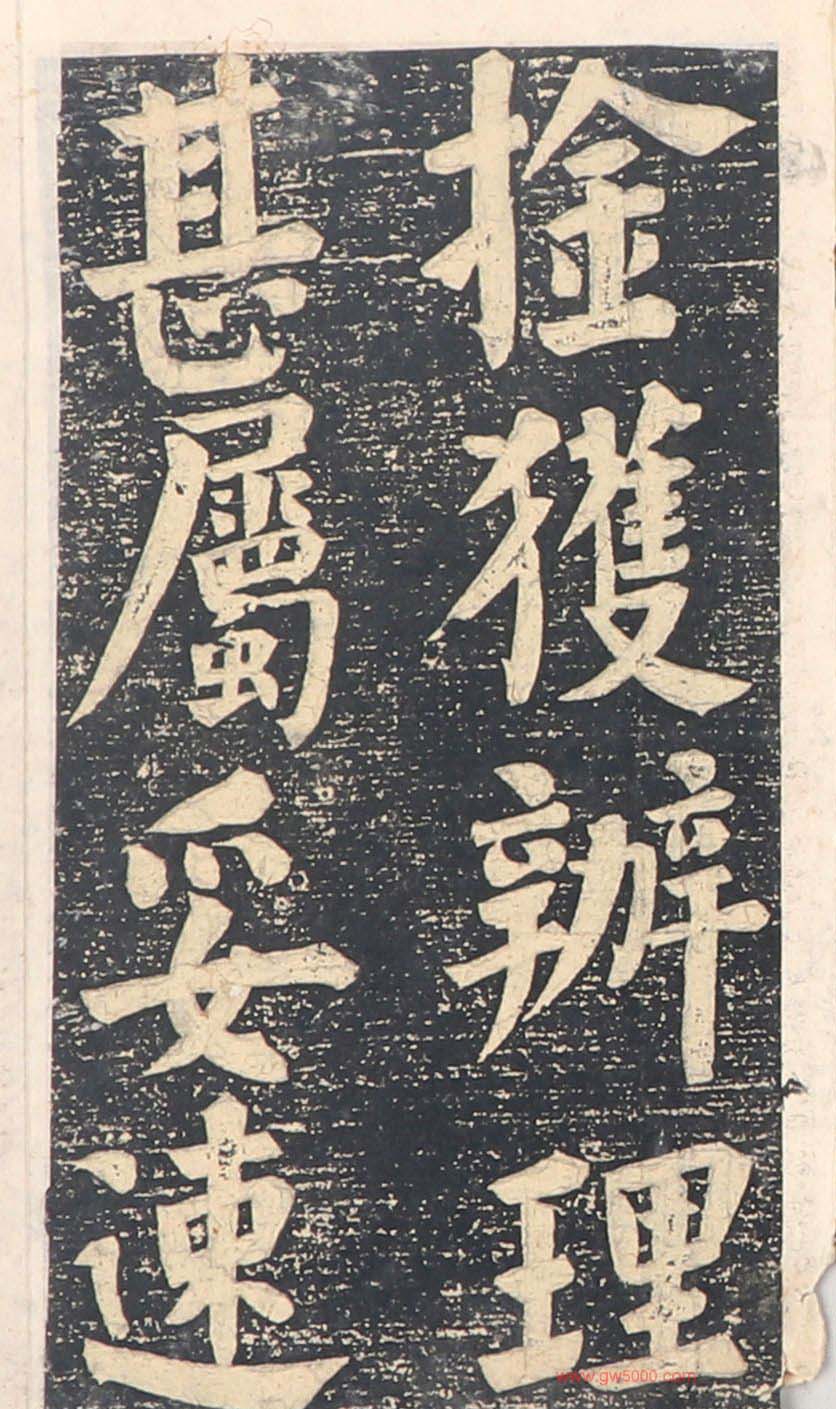 捦獲辦理
甚屬妥速
www.gw5000.com